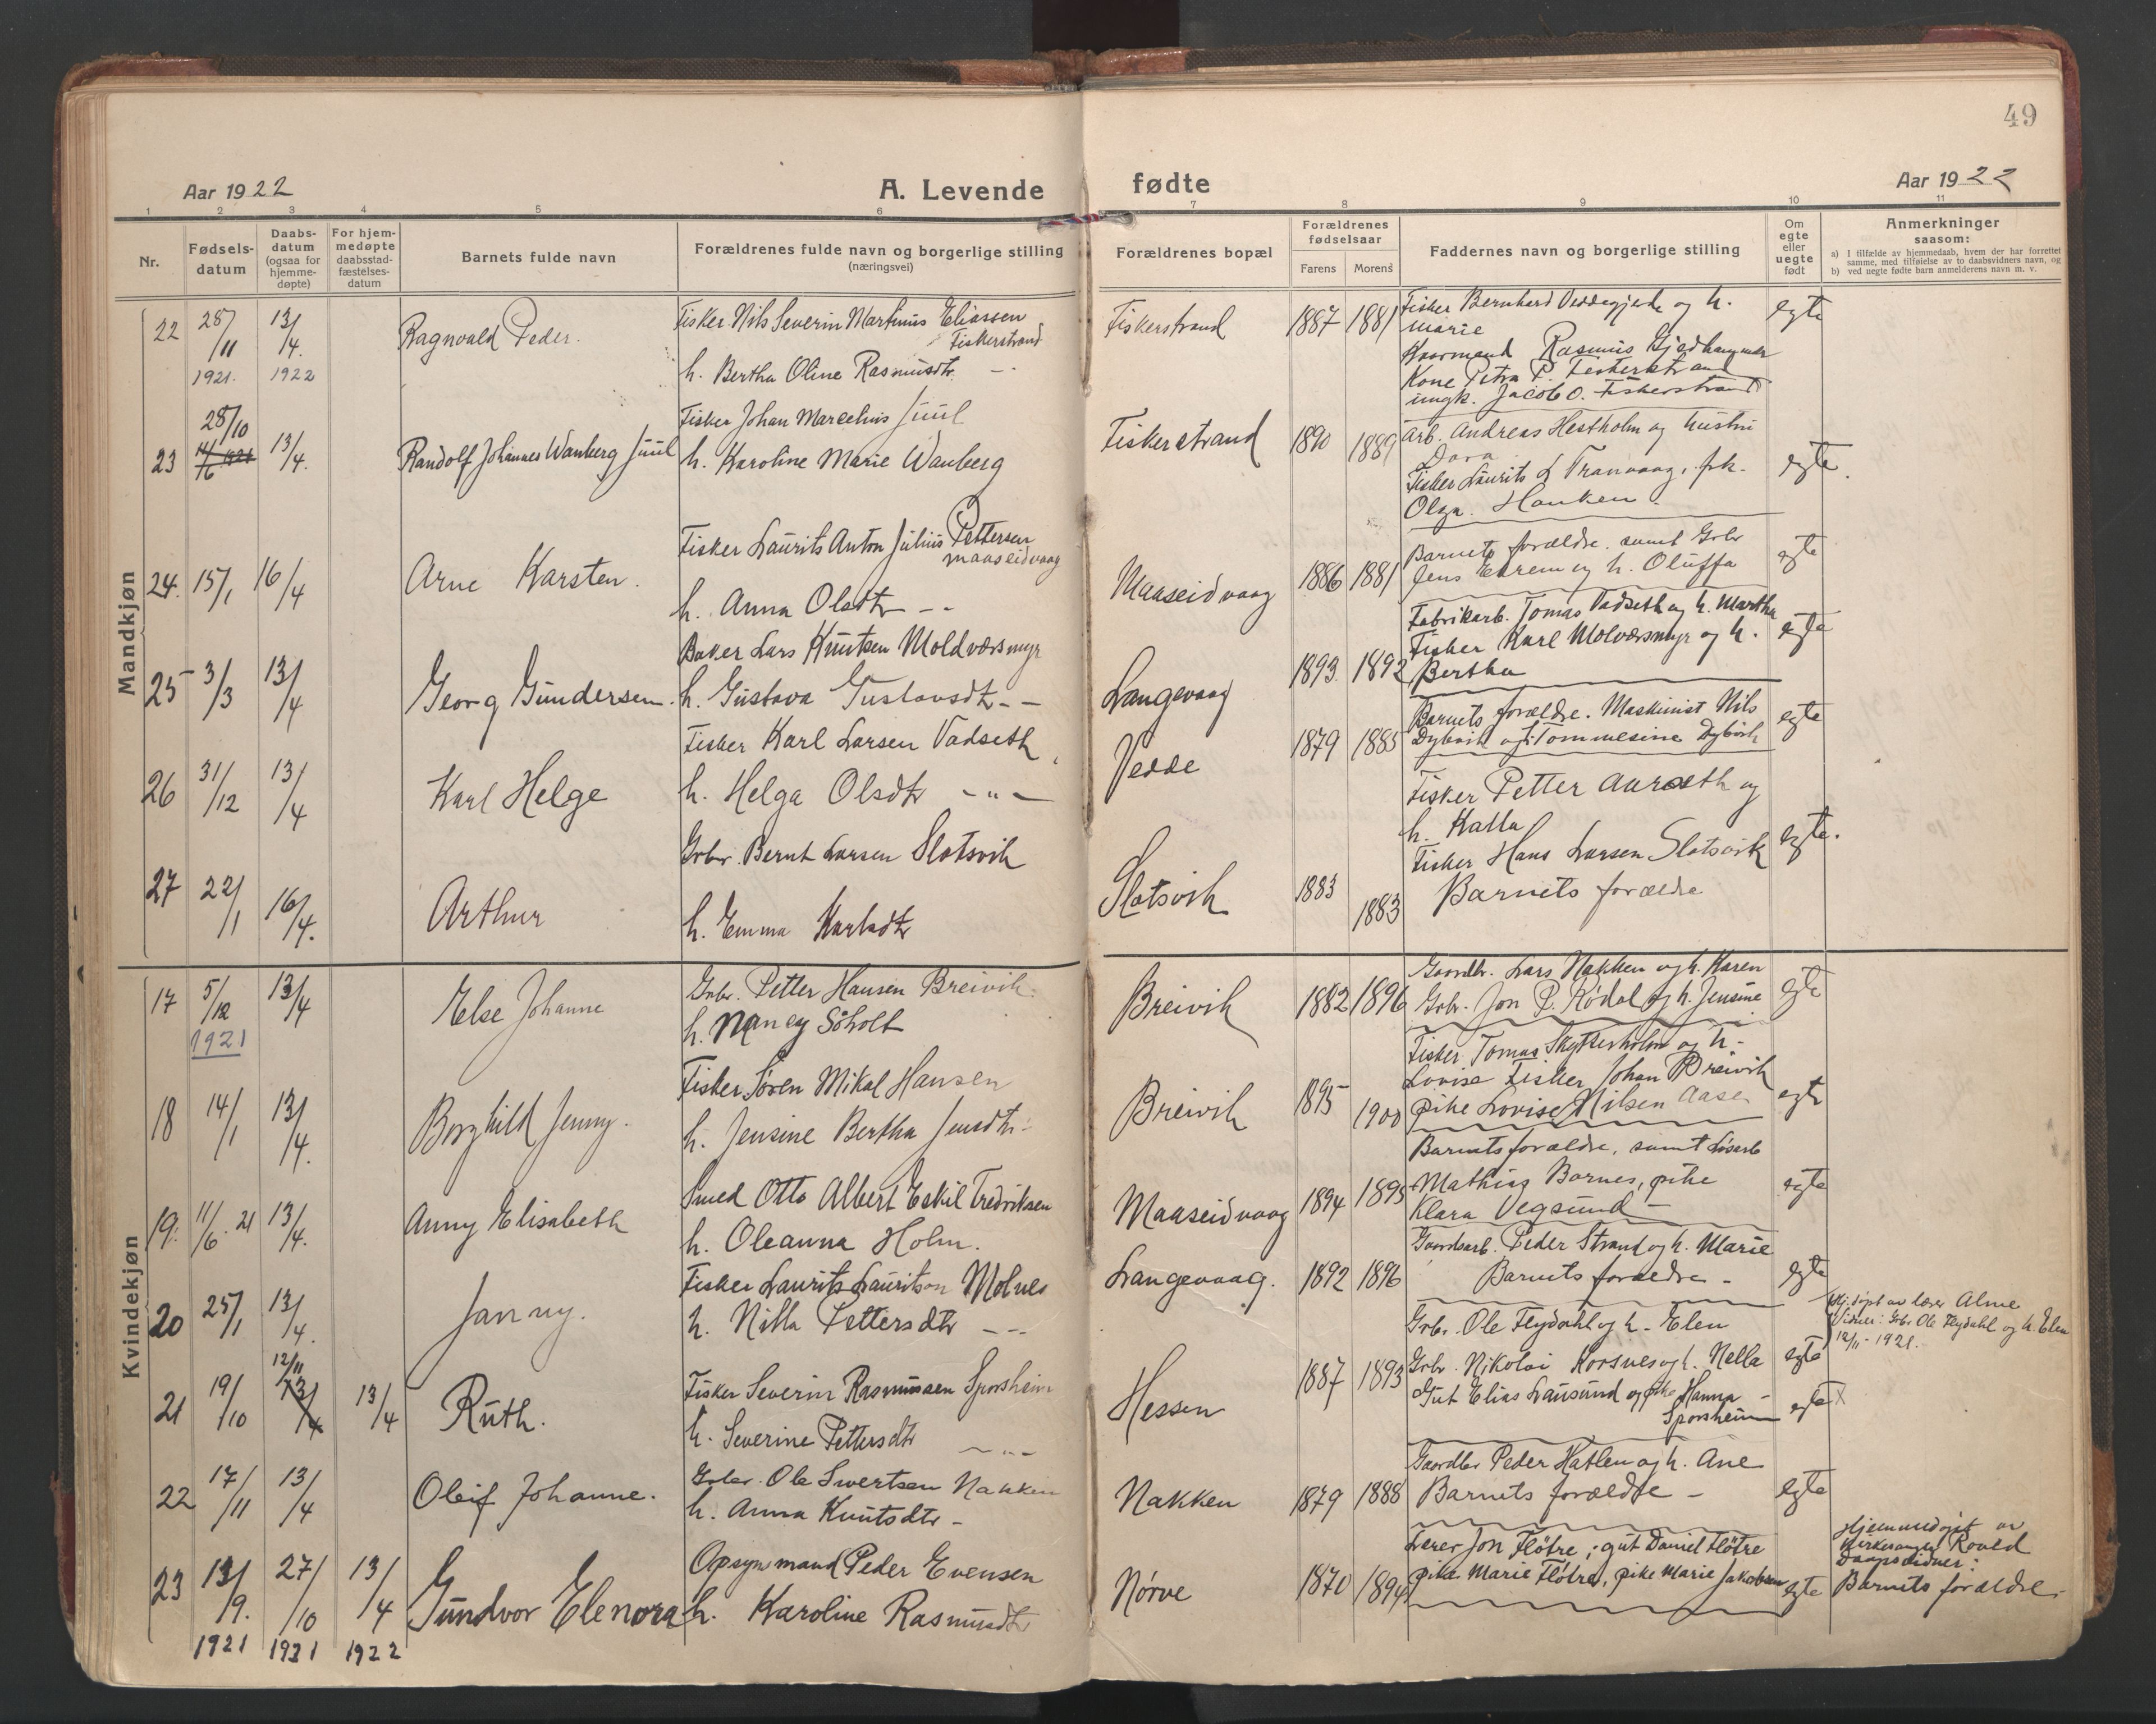 49
Aar 1922
A. Levende fødte
Aar 1922
1 2 3 4 5 6 7 8 9 10 11
Nr.
Fødsels-
datum
Daabs-
datum
(ogsaa for
hjemme-
døpte)
For hjem-
medøpte
daabsstad-
fæstelses-
datum
Barnets fulde navn
Forældrenes fulde navn og borgerlige stilling
(næringsvei)
Forældrenes bopæl
Forældrenes
fødselsaar
Farens Morens
Faddernes navn og borgerlige stilling
Om
egte
eller
uegte
født
Anmerkninger
saasom:
a) I tilfælde av hjemmedaab, hvem der har forrettet
samme, med tilføielse av to daabsvidners navn, og
b) ved uegte fødte barn anmelderens navn m. v.
Mandkjøn
22 28/11 1921. 13/4. 1922 Ragnvald Peder.
Fisker Nils Severin Martinus Eliassen
Fiskerstrand
h. Bertha Oline Rasmusdtr. -"-
Fiskerstrand 1887 1881
Fisker Bernhard Veddegjerde og h.
Marie
Rasmus
Kone Petra P. Fiskerstrand
ungk. Jacob O. Fiskerstrand
egte
23 28/10 14/6 1921 13/4. Randolf Johannes Wanberg Juul
Fisker Johan Marcelius Juul
h. Karoline Marie Wanberg
Fiskerstrand 1890 1889
Arb. Andreas Hestholm og hustru
Dora
Fisker Laurits L Tranvaag, frk.
Olga Hanken
egte.
24. 15/1 16/4 Arne Karsten.
Fisker Laurits Anton Julius Pettersen
Maaseidvaag
h. Anna Olsdtr -"-
Maaseidvaag 1886 1881
Barnets forældre. samt Grbr
Jens Eurem og h. Oluffa
egte
25 3/3 13/4 Georg Gundersen.
Baker Lars Knutsen Moldværsmyr
h. Gustava Gustavsdt -"-
Langevaag 1893 1892
Fabrikarb. Tomas Vadseth og h. Martha
Fisker Karl Molværsmyr og h.
Bertha
egte
26 31/12 13/4 Karl Helge
Fisker Karl Larsen Vadseth
h. Helga Olsdtr -"-
Vedde 1879 1885
Barnets forældre. Maskinist Nils
Dybvik og Tommesine Dybvik
egte
27 22/1 16/4. Arthur
Grbr. Bernt Larsen Slotsvik
h. Emma Karlsdtr
Slotsvik 1883 1883
Fisker Petter Aurseth og
h. Kalla
Fisker Hans Larsen Slotsvik
Barnets forældre
egte.
Kvindekjøn
17 5/12 1921 13/4 Else Johanne
Grbr. Petter Hansen Breivik.
h. Nancy Søholt
Breivik 1882 1896
Gaardbr. Lars Nakken og h. Karen
Grbr. Jon P. Rødal og h. Jensine
egte
18 14/1 13/4. Borghild Jenny.
Fisker Søren Mikal Hansen
h. Jensine Bertha Jensdtr.
Breivik 1895 1900
Fisker Tomas Skytterholm og h.
Lovise Fisker Johan Breivik
pike Lovise Nilsen Aase
egte
19. 11/6. 21 13/4. Anny Elisabeth
Smed Otto Albert Eskil Fredriksen
h. Oleanna Holm.
Maaseidvaag 1894 1895
Barnets forældre, samt Løsarb
Mathias Barnes, pike
Klara Vegsund
egte
20 25/1 13/4. Janny.
Fisker Laurits Lauritsen Molnes
h. Nilla Pettersdtr -"-
Langevaag. 1892 1896
Gaardsarb. Peder Strand og h. Marie
Barnets forældre -
egte
21 19/10 12/11 13/4 13/4 Ruth.
Fisker Severin Rasmussen Sporsheim
h. Severine Pettersdtr -"-
Hessen 1887 1893
Grbr. Ole Flydahl og h. Elen
Grbr. Nikolai Korsnes og h. Nella
Gut Elias Lausund og pike Hanna
Sporsheim
egte
egte X
Hj. døpt av lærer Alme
Vidner: Grbr Ole Flydahl og h. Elen
12/11 - 1921.
22 17/11 13/4 Oleif Johanne.
Grbr. Ole Sivertsen Nakken
h. Anna Knutsdtr -
Nakken 1879 1888
Gaardbr Peder Hatlen og h. Ane
Barnets forældre -
egte
23 13/9. 1921 27/10 1921 13/4 1922 Gundvor Elenora
Opsynsmand Peder Evensen
h. Karoline Rasmusdtr
Nørve 1870 1894
Lærer Jon Fløtre; gut Daniel Fløtre
pike Marie Fløtre, pike Marie Jakobsen
egte
Hjemmedøpt av
Kirkesanger Roald
Daapsvidner:
Barnets forældre.